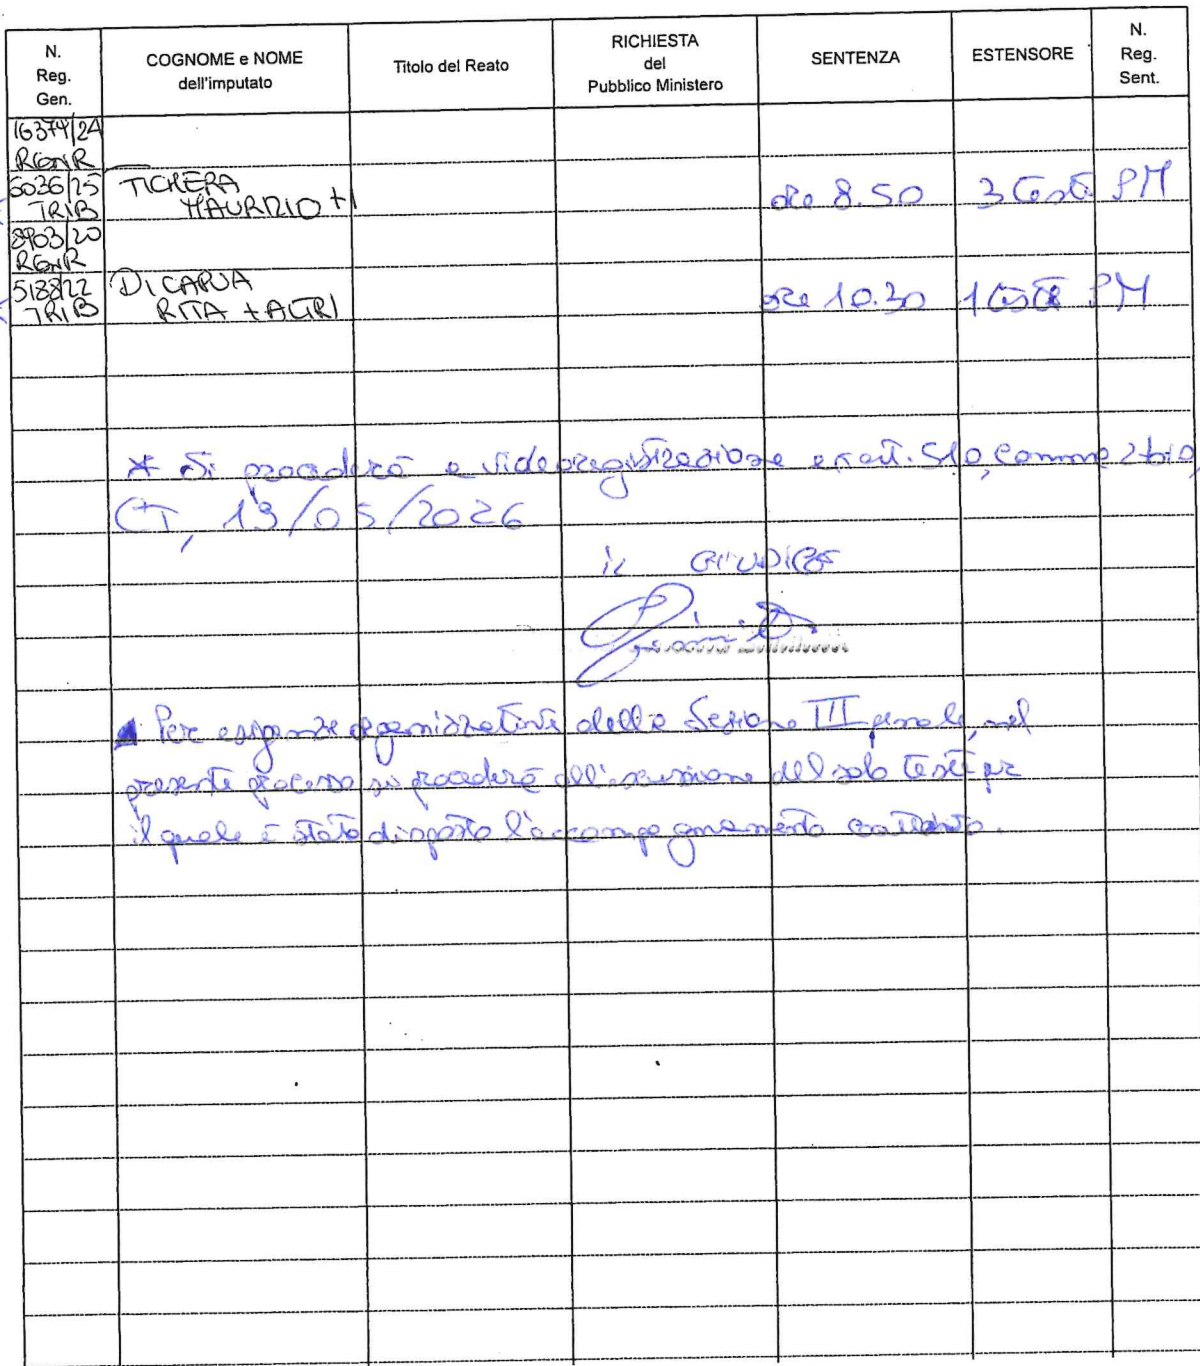 N. Reg. Gen. COGNOME e NOME dell'imputato Titolo del Reato RICHIESTA del Pubblico Ministero SENTENZA ESTENSORE N. Reg. Sent.
16374/24
RGNR
5036/25 TICHERA
TRIB MAURIZIO +1 ore 8.50 3 testi PM
8903/20
RGNR
5188/22 DI CAPUA
TRIB RITA + ALTRI ore 10.30 1 teste PM
* Si procederà a videoregistrazione ex art. 510, comma 2 bis,
CT, 13/05/2026
IL GIUDICE
Per esigenze organizzative della Sezione III penale, nel
presente processo si procederà all'escussione del solo teste per
il quale è stato disposto l'accompagnamento coattivo.